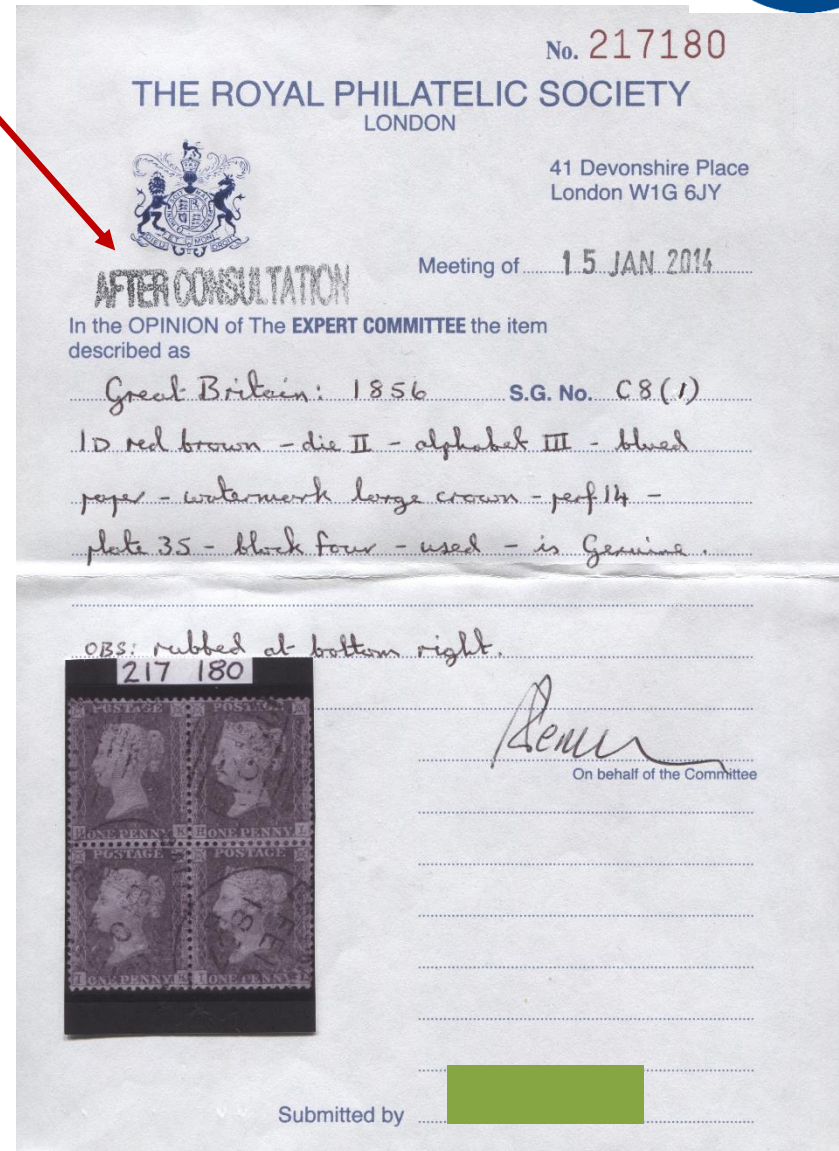 No. 217180
THE ROYAL PHILATELIC SOCIETY
LONDON
41 Devonshire Place
London W1G 6JY
Meeting of 15 JAN 2014
AFTER CONSULTATION
In the OPINION of The EXPERT COMMITTEE the item
described as
Great Britain: 1856 S.G. No. C8(1)
1D red brown - die II - alphabet III - blued
paper - watermark large crown - perf 14 -
plate 35 - block four - used - is Genuine.
OBS: rubbed at bottom right.
217 180
POSTAGE POSTAGE
H ONE PENNY K H ONE PENNY L
POSTAGE POSTAGE
I ONE PENNY K I ONE PENNY L
On behalf of the Committee
Submitted by